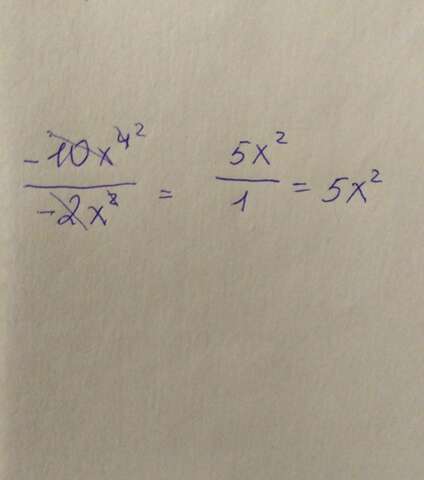 -10x⁴² / -2x² = 5x² / 1 = 5x²